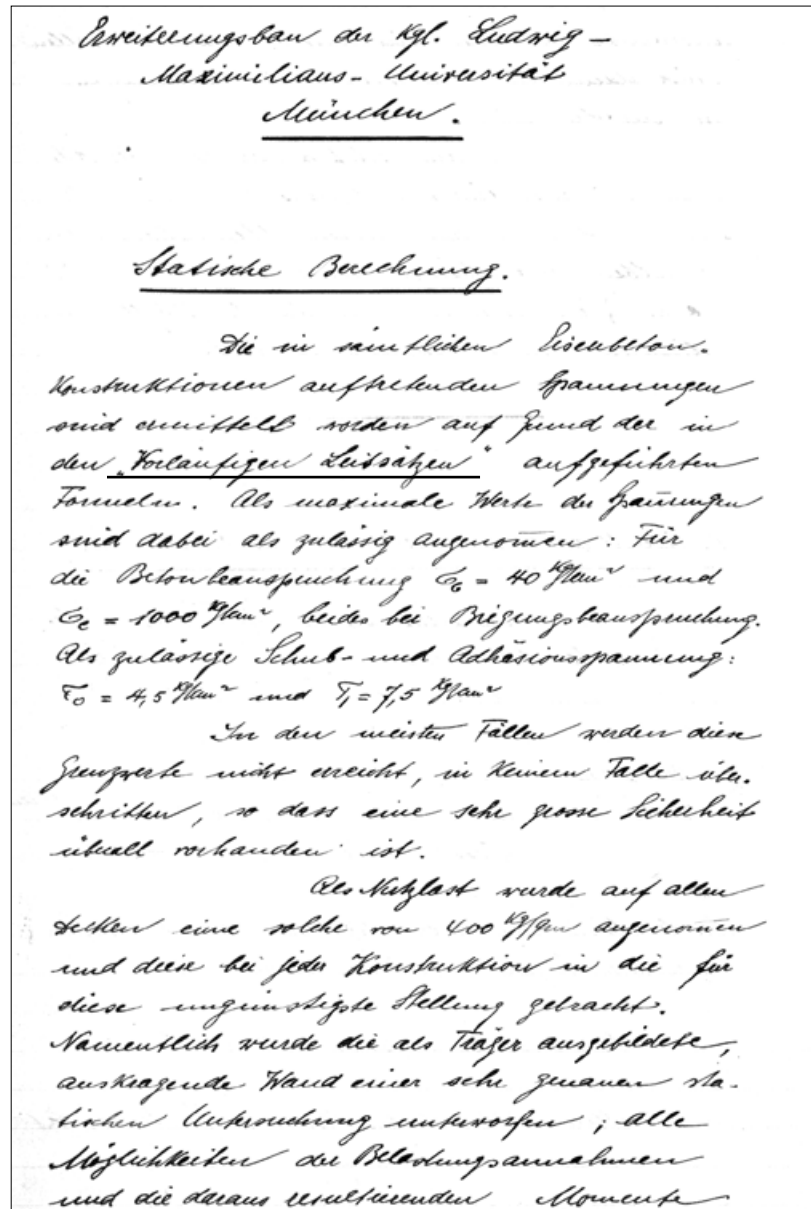 Erweiterungsbau der Kgl. Ludwig –
Maximilians - Universität
München.
Statische Berechnung.
Die in sämtlichen Eisenbeton-
Konstruktionen auftretenden Spannungen
sind ermittelt worden auf Grund der in
den „Vorläufigen Leitsätzen“ aufgeführten
Formeln. Als maximale Werte der Span̄ungen
sind dabei als zulässig angenom̄en: Für
die Betonbeanspruchung σb = 40 kg/cm² und
σe = 1000 kg/cm², beides bei Biegungsbeanspruchung.
Als zulässige Schub- und Adhäsionsspannung:
τ0 = 4,5 kg/cm² und τ1 = 7,5 kg/cm²
In den meisten Fällen werden diese
Grenzwerte nicht erreicht, in keinem Falle über-
schritten, so dass eine sehr grosse Sicherheit
überall vorhanden ist.
Als Nutzlast wurde auf allen
Decken eine solche von 400 kg/qm angenom̄en
und diese bei jeder Konstruktion in die für
diese ungünstigste Stellung gebracht.
Namentlich wurde die als Träger ausgebildete,
auskragende Wand einer sehr genauen sta-
tischen Untersuchung unterworfen; alle
Möglichkeiten der Belastungsannahmen
und die daraus resultierenden Momente